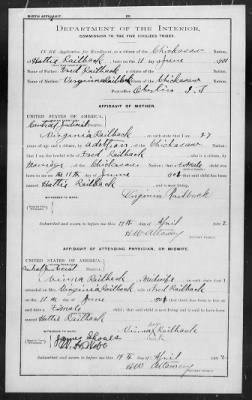 BIRTH AFFIDAVIT.
DEPARTMENT OF THE INTERIOR,
COMMISSION TO THE FIVE CIVILIZED TRIBES.
IN RE Application for Enrollment, as a citizen of the Chickasaw Nation,
of Hattie Railback, born on the 11 day of June, 1901
Name of Father: Fred Railback a citizen of the Chickasaw Nation.
Name of Mother: Virginia Railback a citizen of the Chickasaw Nation.
Post-office
AFFIDAVIT OF MOTHER.
UNITED STATES OF AMERICA,
District.
I, Virginia Railback, on oath state that I am 27
years of age and a citizen, by adoption, of the Chickasaw Nation;
that I am the lawful wife of Fred Railback, who is a citizen, by
marriage of the Chickasaw Nation; that a female child was
born to me on the 11th day of June, 1901; that said child has been
named Hattie Railback, and is now living.
Virginia Railback
WITNESSES TO MARK:
Subscribed and sworn to before me this 19th day of April, 1902
NOTARY PUBLIC.
AFFIDAVIT OF ATTENDING PHYSICIAN, OR MIDWIFE.
UNITED STATES OF AMERICA,
District.
I, Railback, a midwife, on oath state that I
attended on Mrs. Virginia Railback, wife of Fred Railback
on the 11th day of June, 1901; that there was born to her on said
date a female child; that said child is now living and is said to have been
named Hattie Railback
her
Railback
mark
WITNESSES TO MARK:
James
Subscribed and sworn to before me this 19th day of April, 1902
NOTARY PUBLIC.